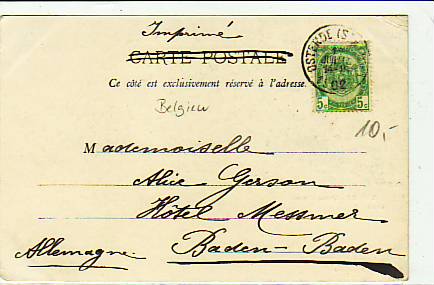 Imprimé
CARTE POSTALE
Ce côté est exclusivement réservé à l'adresse.
OSTENDE (S
02
5c 5c
Belgien
10,-
Mademoiselle
Alice Gerson
Hôtel Messmer
Baden-Baden
Allemagne